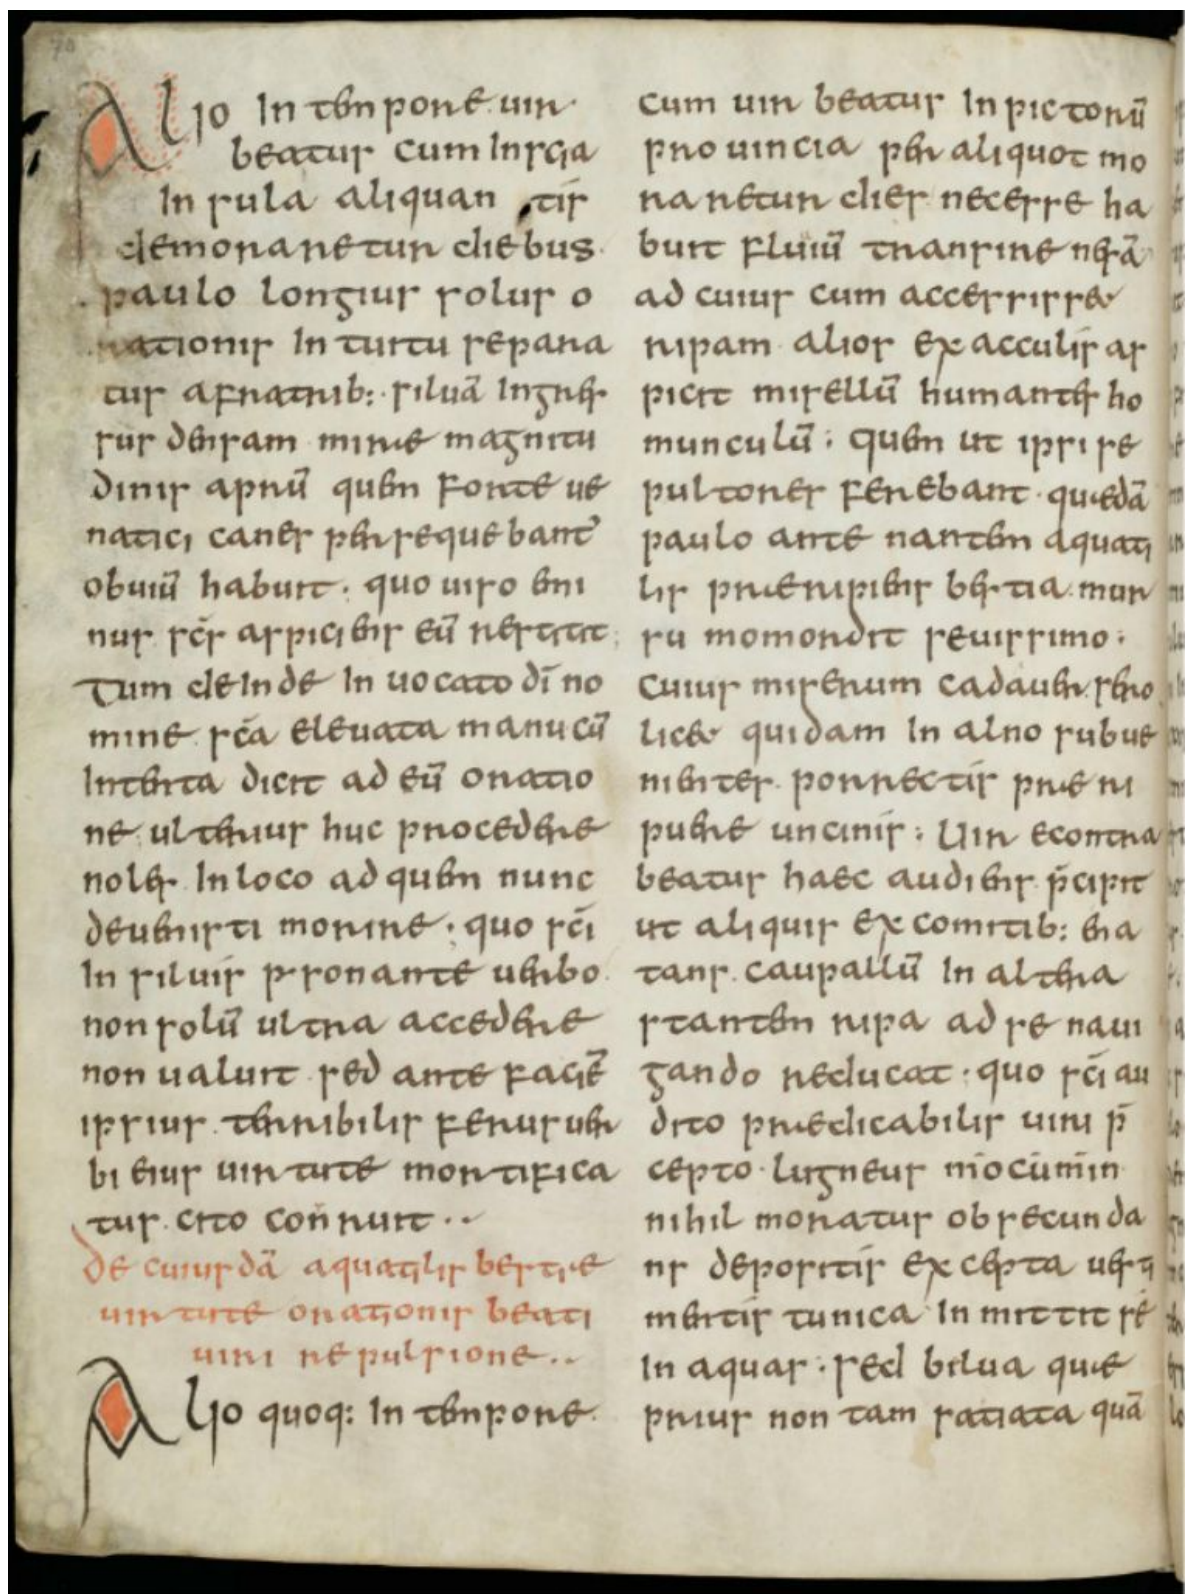 Alio in tempore uir
beatus cum in scia
insula aliquan tis
demoraretur diebus
paulo longius solus o
rationis intuitu separa
tus a fratrib: siluā ingres
sus densam mirae magnitu
dinis aprū quem forte ue
natici canes persequebant᾽
obuiū habuit · quo uiso emi
nus scs̄ aspiciens eū restitit ;
Tum deinde inuocato dī no
mine scā eleuata manu cū
intenta dicit ad eū oratio
ne ulterius huc procedere
noles in loco ad quem nunc
deuenisti morire · quo scī
in siluis personante uerbo
non solū ultra accedere
non ualuit sed ante faciē
ipsius terribilis ferus uer
bi eius uirtute mortifica
tus cito corruit ··
De cuiusdā aquatilis bestiae
uirtute orationis beati
uiri repulsione ··
Alio quoq: in tempore
cum uir beatus in pictorū
prouincia per aliquot mo
raretur dies necesse ha
buit fluiuū transire nesā
ad cuius cum accessisset
ripam alios ex acculis as
picit misellū humantes ho
munculū ; quem ut ipsi se
pultores ferebant · quaedā
paulo ante nantem aquati
lis praeripiens bestia mor
su momordit seuissimo ;
Cuius miserum cadauer sero
licet quidam in alno subue
nientes porrectis prae ri
puere uncinis ; Uir econtra
beatus haec audiens p̄cipit
ut aliquis ex comitib: ena
tans caupallū in altera
stantem ripa ad se naui
gando reducat · quo scī au
dito praedicabilis uiri p̄
cepto · lugneus mocumin
nihil moratus obsecunda
ns depositis excepta uesti
mentis tunica inmittit sé
in aquas · sed bilua quae
prius non tam satiata quā